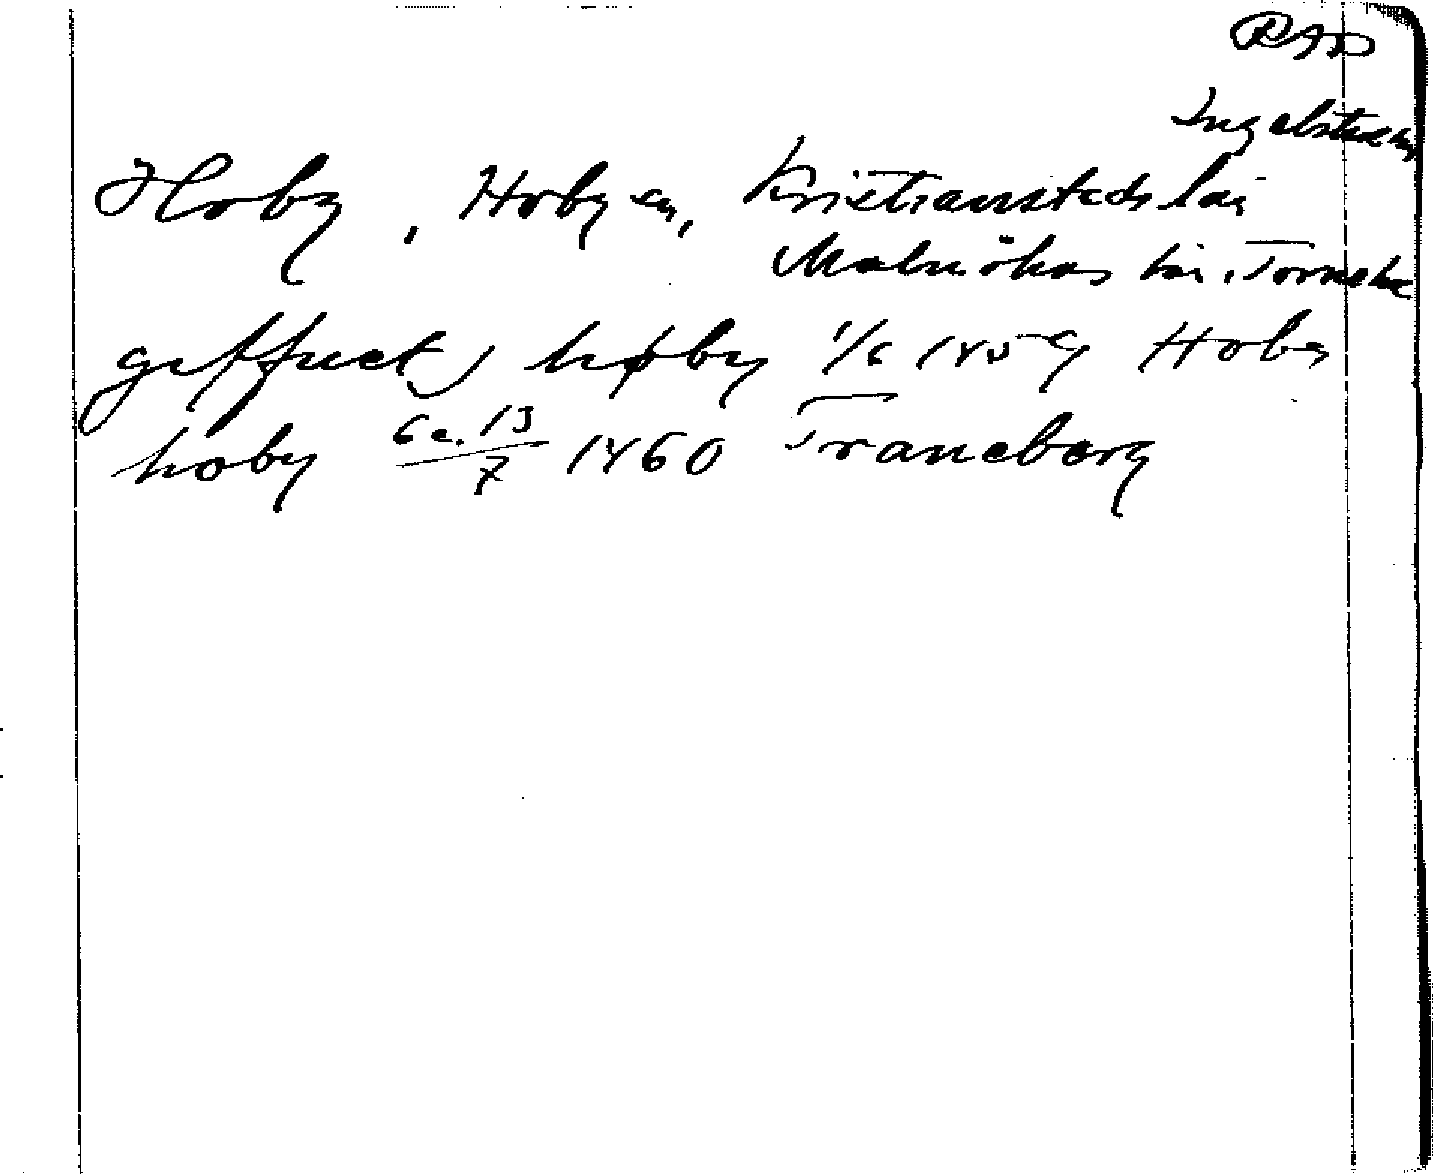 RAP
Ingelstads
Hoby, Hoby sn, Kristianstads län
Malmöhus län, Torna h
geffuet) høby 1/6 1459 Hoby
hoby 6 o. 13/7 1460 Traneborg